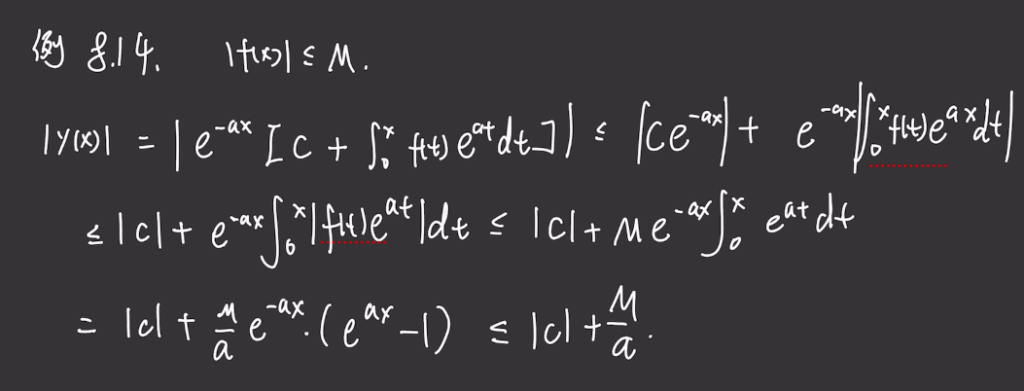 例 8.14. |f(x)| ≤ M.
|y(x)| = |e^{-ax} [C + ∫_0^x f(t) e^{at} dt]| ≤ |Ce^{-ax}| + e^{-ax} |∫_0^x f(t) e^{ax} dt|
≤ |C| + e^{-ax} ∫_0^x |f(t) e^{at}| dt ≤ |C| + M e^{-ax} ∫_0^x e^{at} dt
= |C| + \frac{M}{a} e^{-ax} · (e^{ax} - 1) ≤ |C| + \frac{M}{a}.